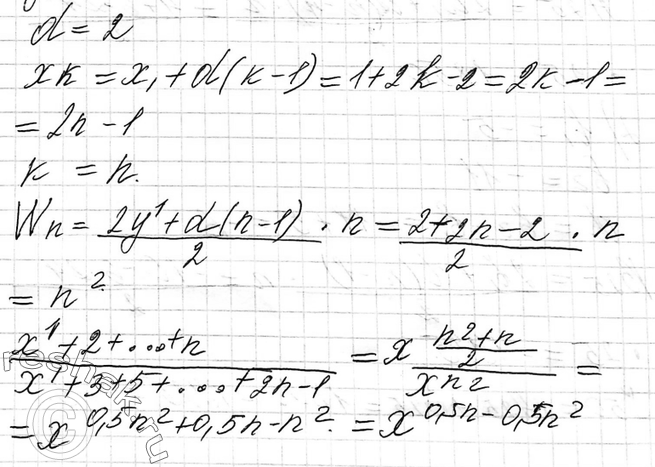 d = 2
xк = x₁ + d(к-1) = 1+2k-2 = 2к-1 =
= 2n-1
к = n.
Wn = (2y¹+d(n-1))/2 · n = (2+2n-2)/2 · n
= n².
x¹+2+...+n / x¹+3+5+...+2n-1 = x (n²+n)/2 / xn² =
= x^0,5n²+0,5n-n². = x^0,5n-0,5n²
reshak.ru